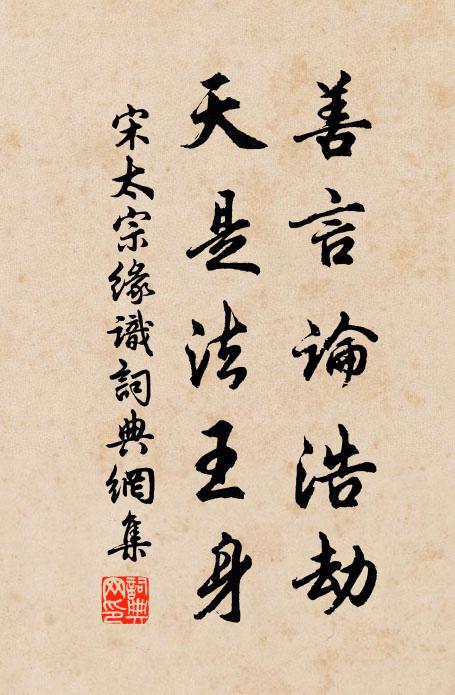 善言論浩劫
天是法王身
宋太宗緣識詞典網集
詞典网印